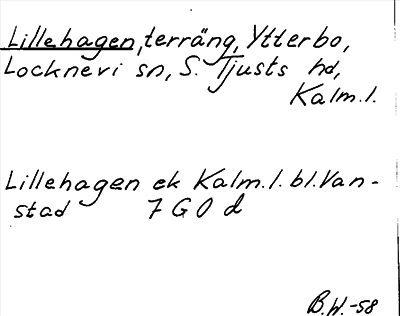 Lillehagen, terräng, Ytterbo,
Locknevi sn, S. Tjusts hd,
Kalm. l.
Lillehagen ek Kalm. l. bl. Van-
stad 7 G 0 d
B.W.-58